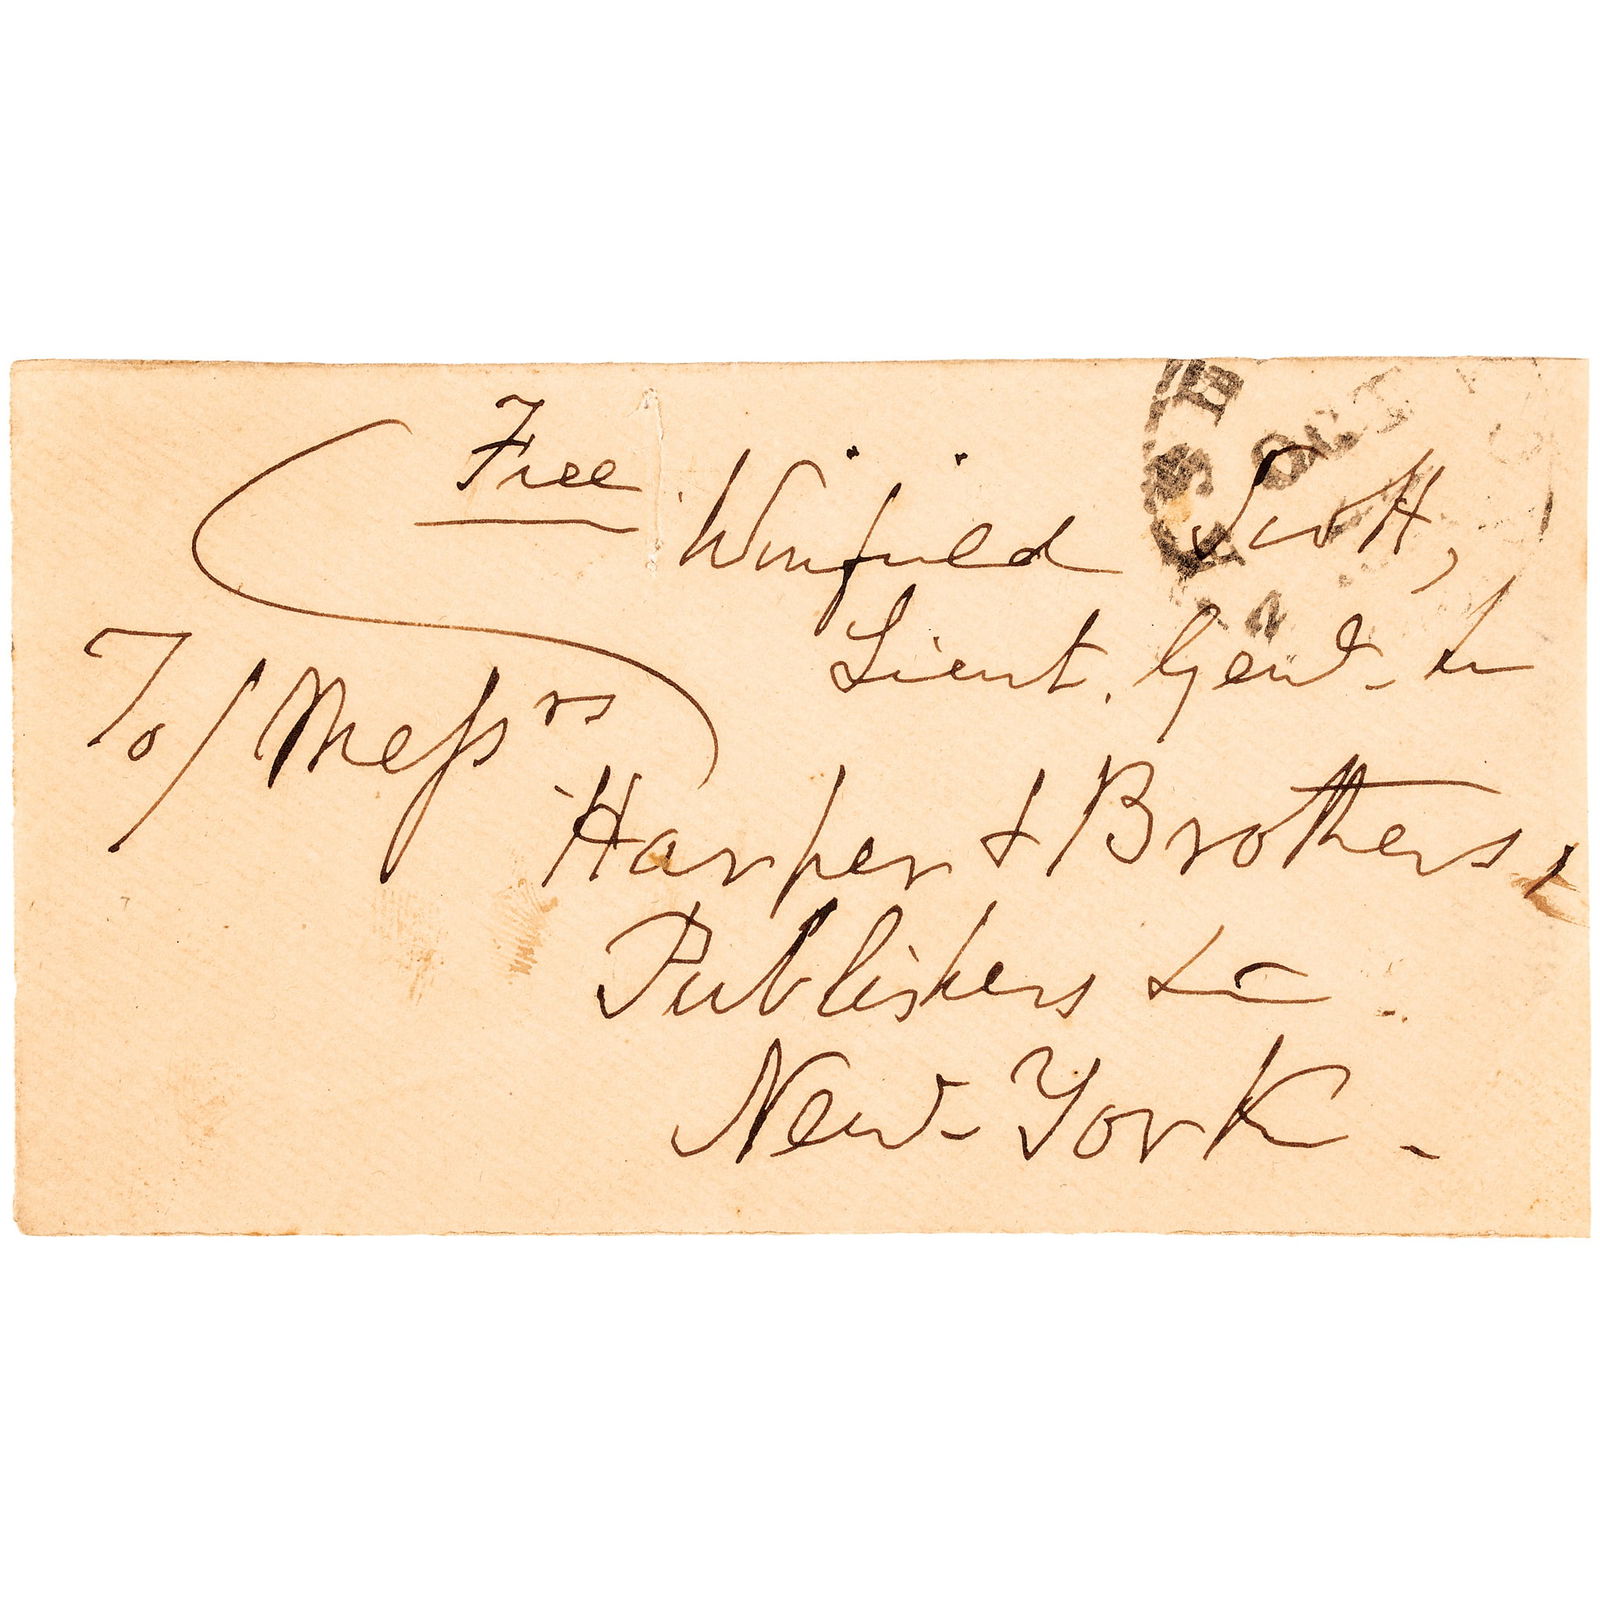 Free
Winfield Scott,
Lieut. Genl.
To/ Messrs
Harper & Brothers,
Publishers &c
New-York.
OCT